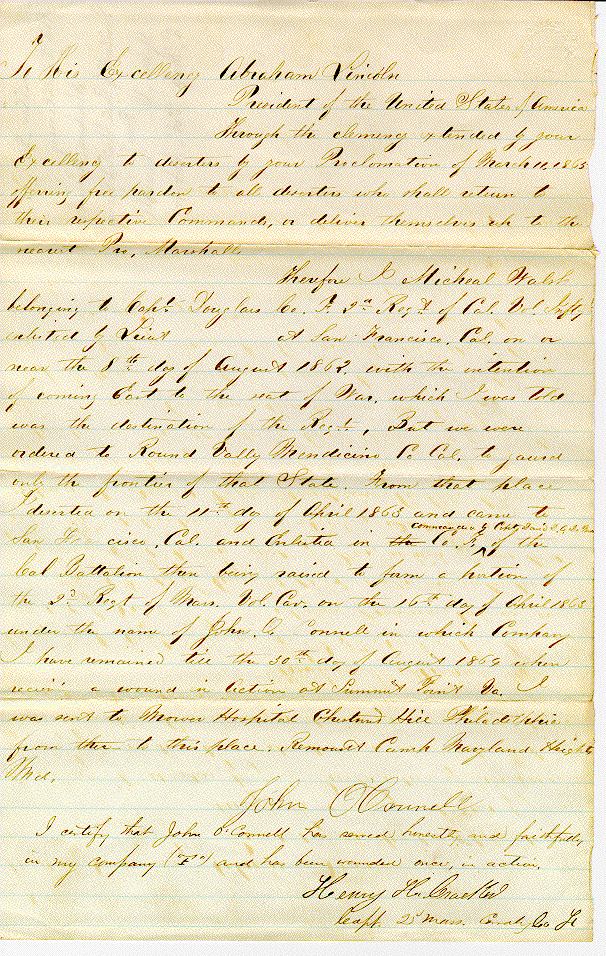 To His Excellency Abraham Lincoln
President of the United States of America
Through the clemency extended by your
Excellency to deserters by your Proclamation of March 11, 1865
offering free pardon to all deserters who shall return to
their respective Commands, or deliver themselves up to the
nearest Pro, Marshall
Therefore I Micheal Walsh
belonging to Capt Douglass Co. F. 2d Regt of Cal. Vol. Infty
enlisted by Lieut At San Francisco, Cal. on or
near the 8th day of August 1862, with the intention
of coming East to the seat of War, which I was told
was the destination of the Regt, But we were
ordered to Round Vally Mendicino Co Cal. to gaurd
only the frontier of that State. From that place
I deserted on the 11th day of April 1863 and came to
commanded by Capt
San Francisco, Cal. and Enlisted in the Co. F. of the
Cal Battalion then being raised to form a portion of
the 2d Regt of Mass. Vol. Cav. on the 16th day of April 1863
under the name of John O. Connell in which Company
I have remained till the 30th day of August 1864 when
receiving a wound in action at Summit Point Va. I
was sent to Mower Hospital Chestnut Hill Philadelphia
from there to this place. Remount Camp Maryland Heights
Md.
John O'Connell
I certify that John O'Connell has served honestly and faithfully
in my company ("F") and has been wounded once, in action.
Henry H. Crocker
Capt. 2d Mass. Cavalry Co F